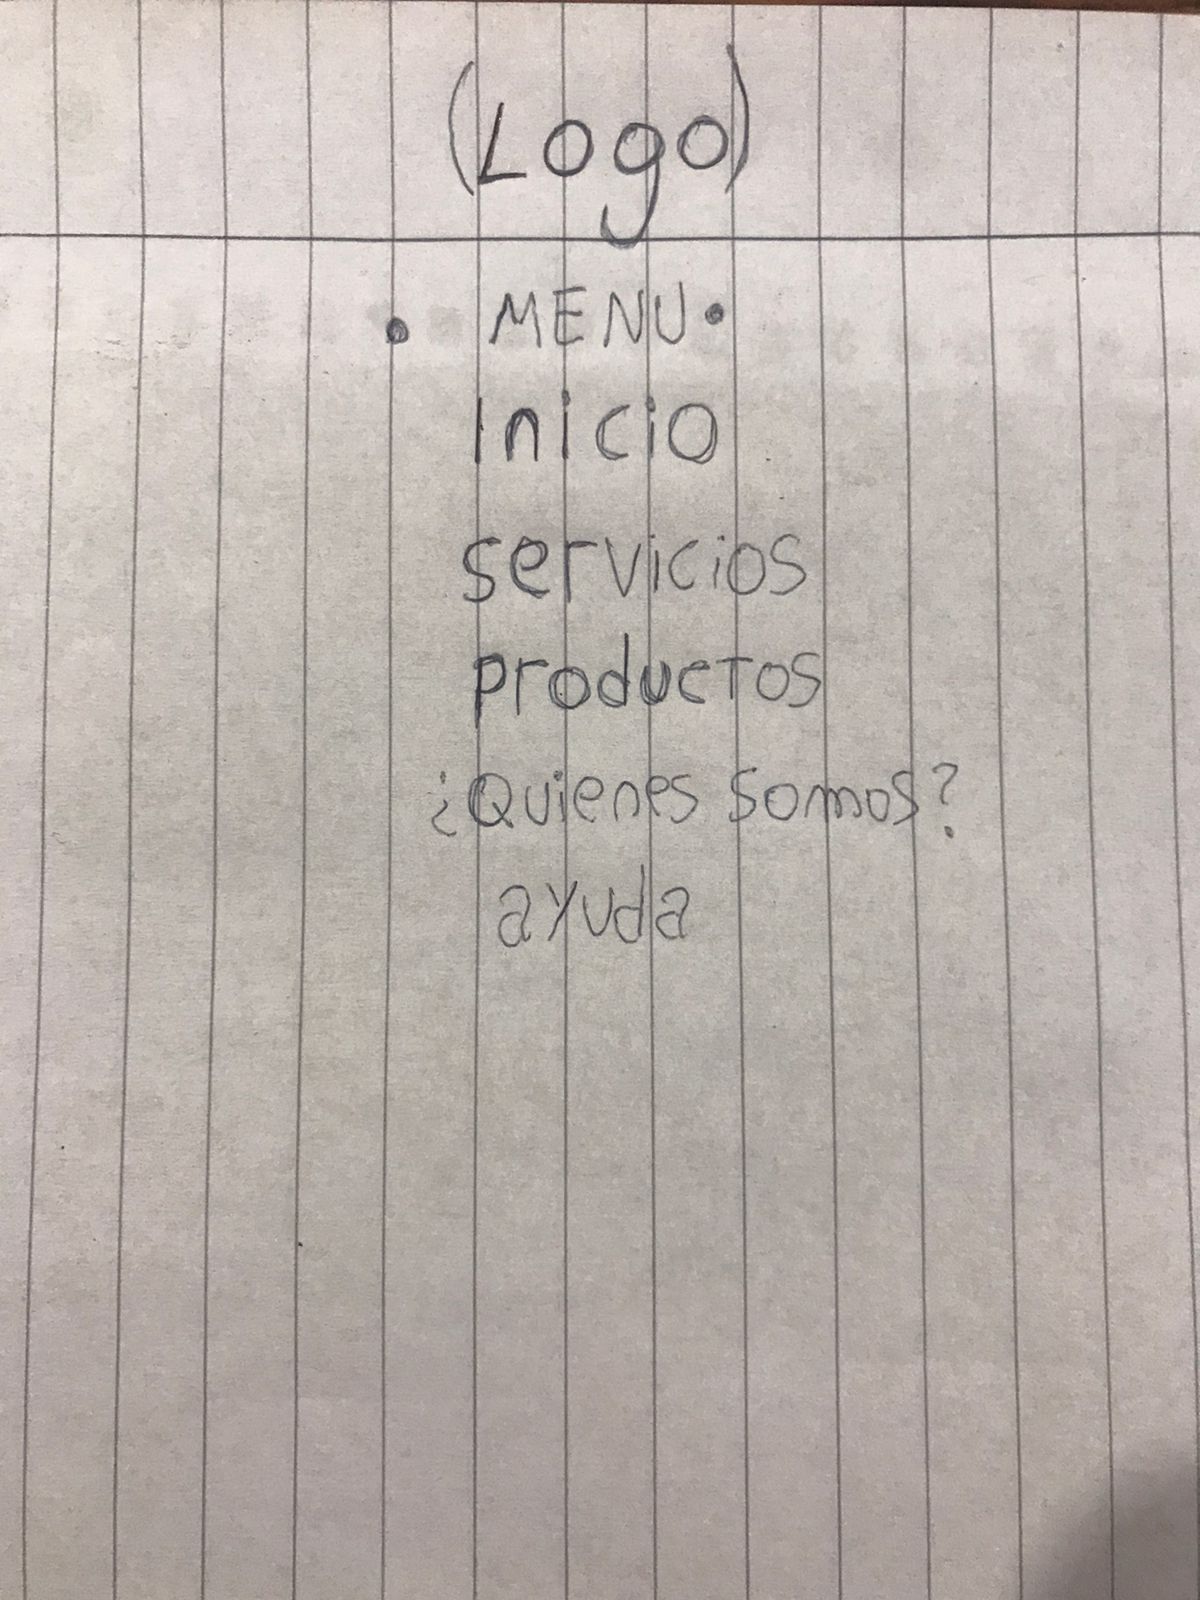 (Logo)
• MENU •
Inicio
servicios
productos
¿Quienes somos?
ayuda